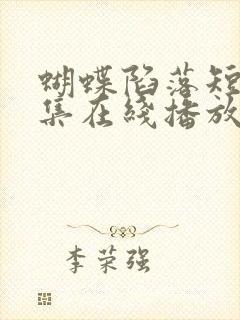 蝴蝶陷落短
集在线播放
李荣强